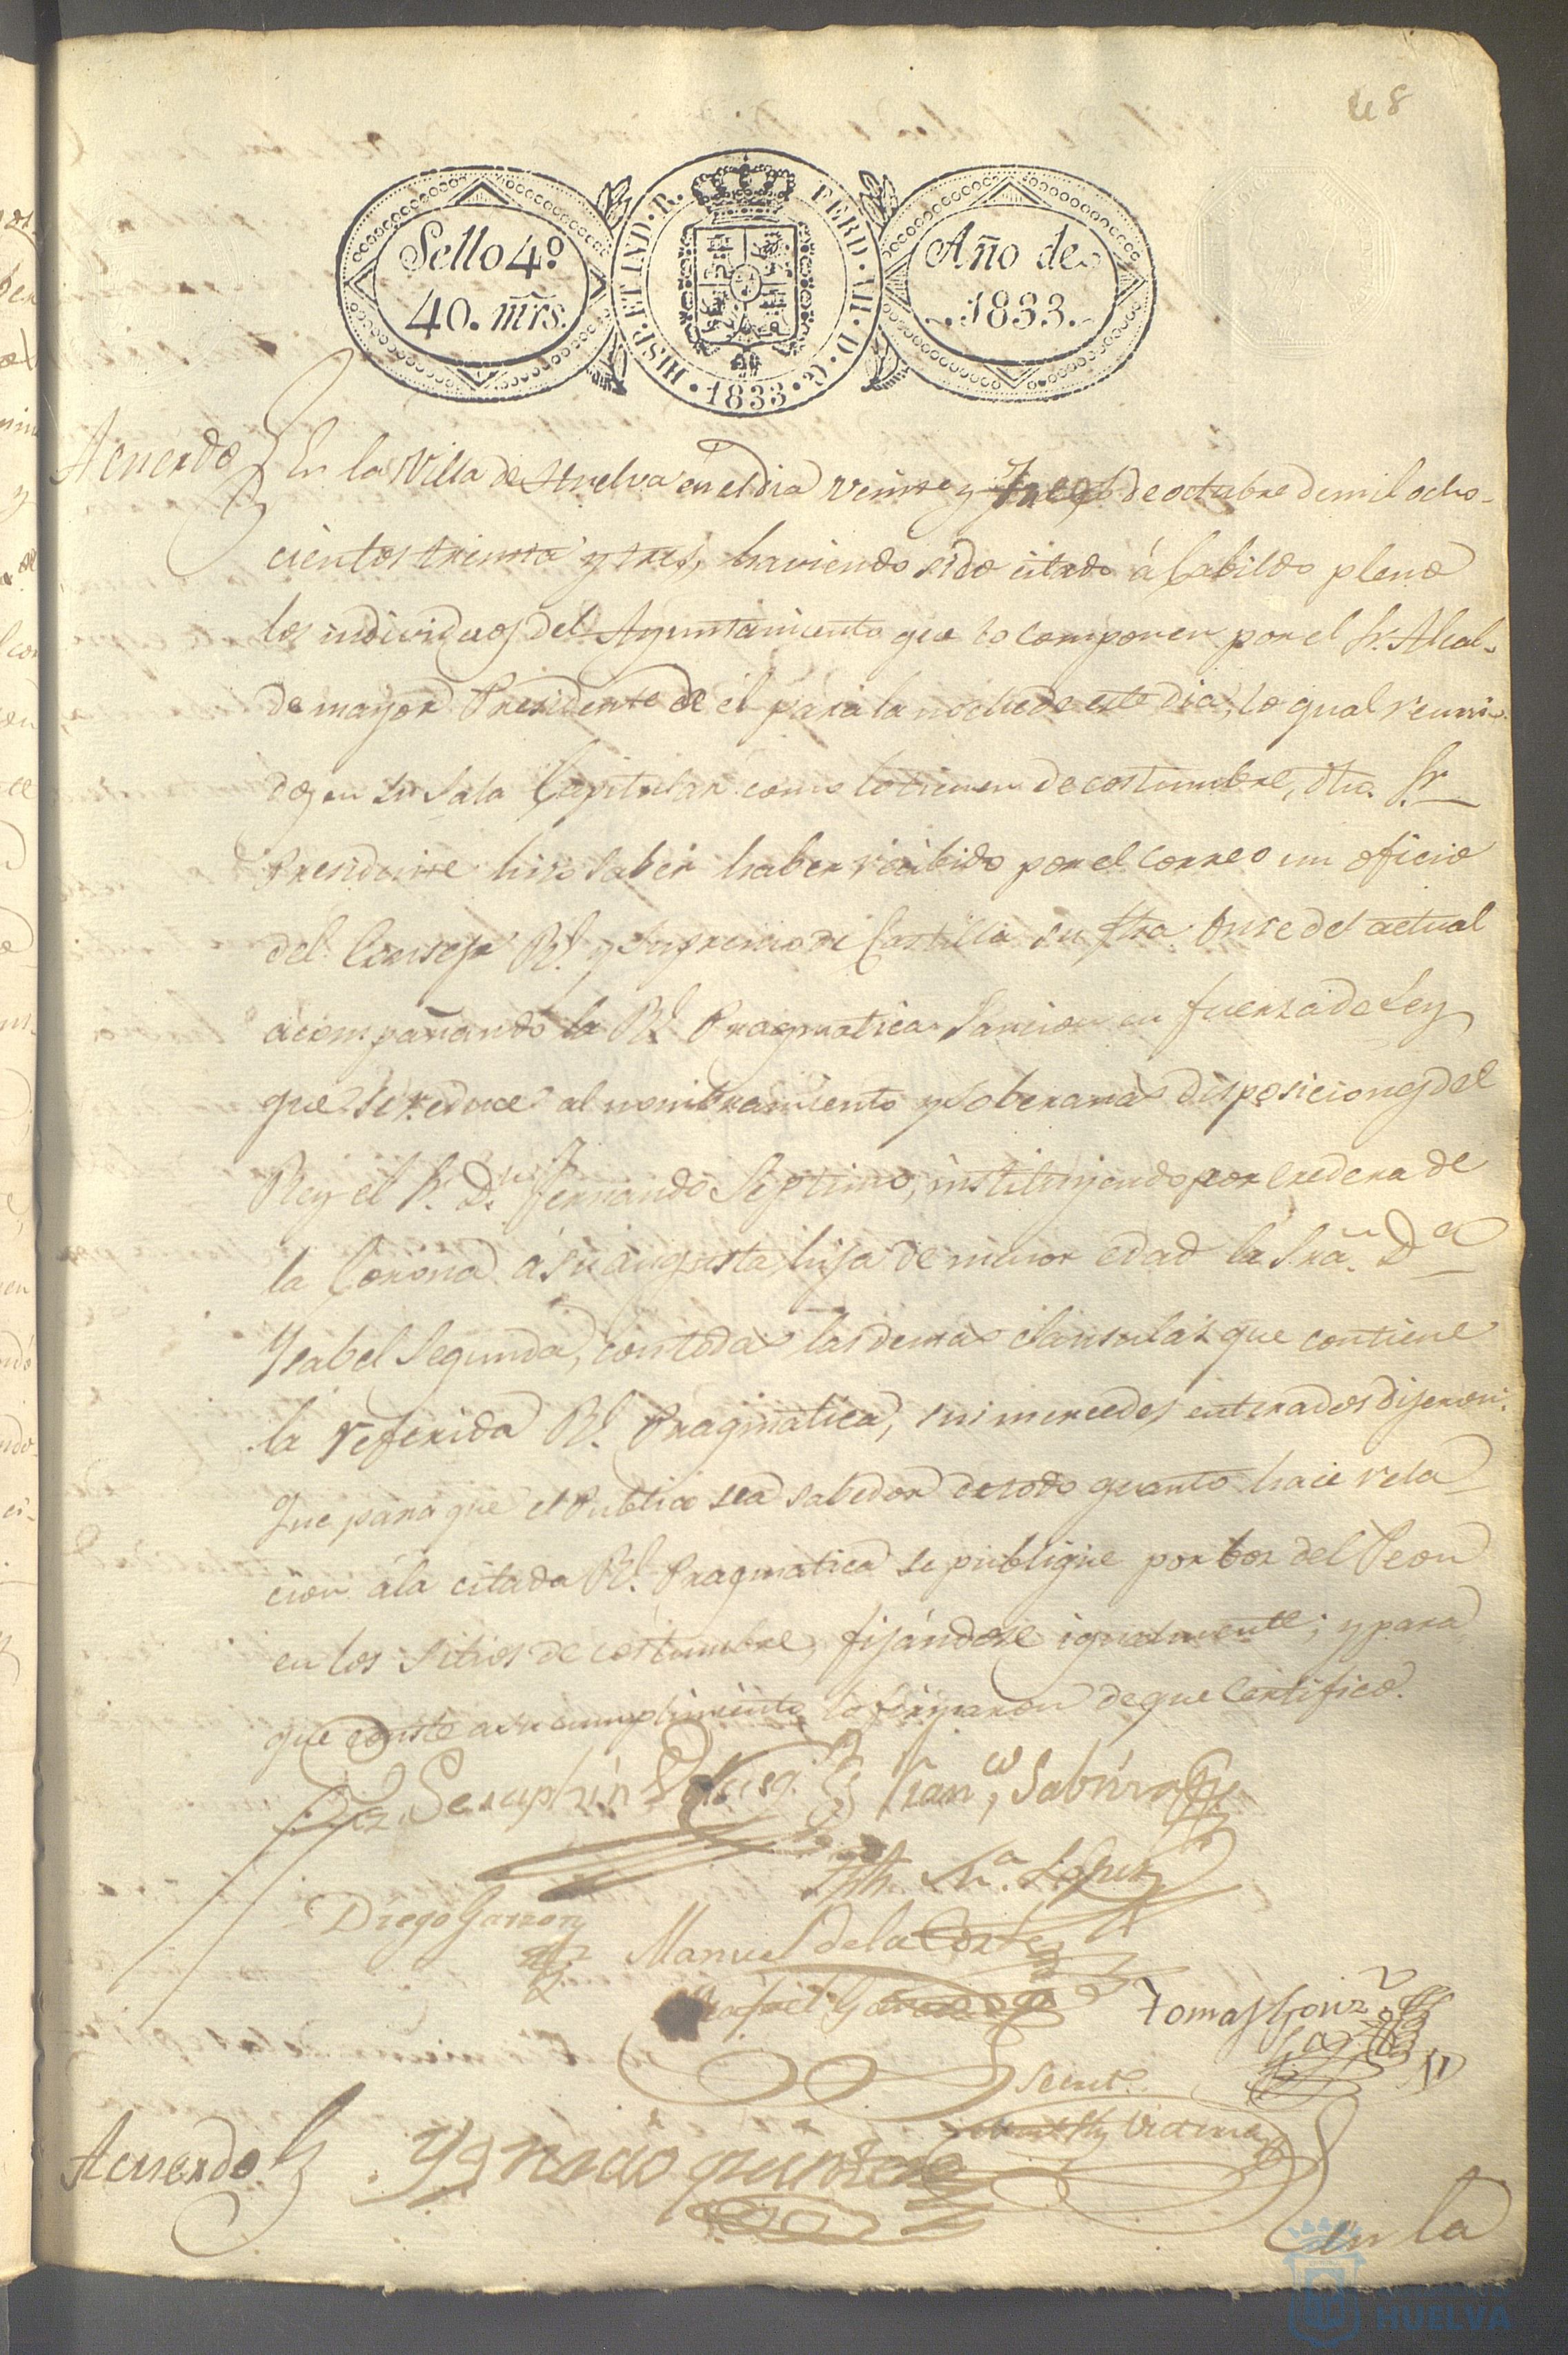 48
Sello 4º
40. mrs.
HISP. ET IND. R. FERD. VII. D. G. 1833.
Año de
1833.
Acuerdo En la Villa de Huelva en el dia veinte y tres de octubre de mil ocho-
cientos treinta y tres, haviendo sido citado á Cabildo pleno
los individuos del Ayuntamiento que lo componen por el Sr. Alcal-
de mayor Presidente de él para la noche de este dia, lo qual reuni-
dos en su Sala Capitular como lo tienen de costumbre, dho. Sr
Presidente hiso saber haber recibido por el Correo un oficio
del Consejo Rl. y Supremo de Castilla su fha. onse del actual
acompañando la Rl. Pragmatica Sancion en fuersa de Ley
que se reduce al nombramiento y soberanas disposiciones del
Rey el Sr. Dn. Fernando Septimo, instituyendo por eredera de
la Corona á su augusta hija de menor edad la Sra. Da
Ysabel Segunda, con todas las demas clausulas que contiene
la referida Rl. Pragmatica, sus mercedes enterados dijeron:
Que para que el Publico sea sabedor de todo quanto hace rela-
cion á la citada Rl. Pragmatica se publique por bos del Peon
en los sitios de costumbre, fijándose igualmente; y para
que conste a su cumplimiento lo firmaron de que Certifico.
Seraphin
Franco, Saburo
Ma. Lopez
Diego Garzon
Manuel de la Corte
Rafael Garcia
Tomas Gonz
Secret
Ygnacio quintero
Acuerdo
en la
HUELVA